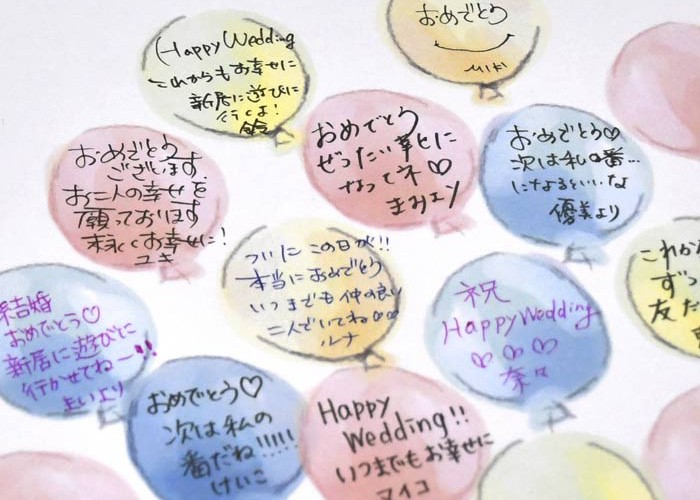 Happy Wedding
これからもお幸せに
新居に遊びに
行くよ!
鈴
おめでとう
MIKI
おめでとう
ございます
お二人の幸せを
願っております
末永くお幸せに!
ユキ
おめでとう
ぜったい幸せに
なってネ♡
まみより
おめでとう♡
次は私の番…
になるといいな
優美より
ついに この日が!!
本当におめでとう
いつまでも仲の良い
二人でいてね♡♡
ルナ
祝
Happy Wedding
♡ ♡ ♡
奈々
これか
ずっ
友だ
結婚
おめでとう♡
新居に遊びに
行かせてねー!!
まいより
おめでとう♡
次は私の
番だね!!!!!
けいこ
Happy
Wedding!!
いつまでもお幸せに
マイコ